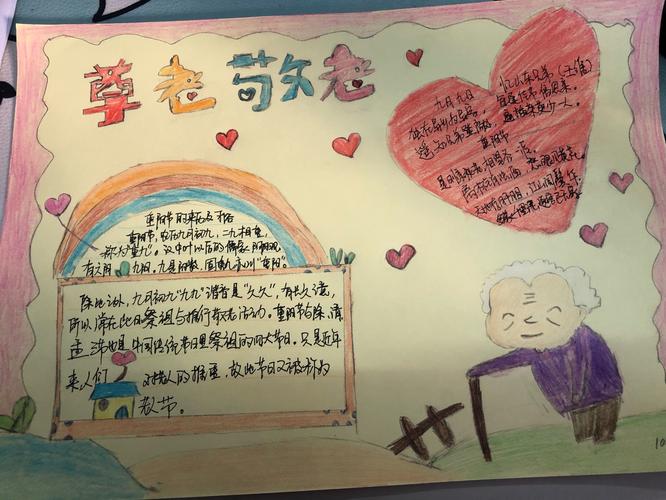 尊老敬老
九月九日
忆山东兄弟（王维）
独在异乡为异客，
每逢佳节倍思亲。
遥知兄弟登高处，
遍插茱萸少一人。
重阳节
重阳节的来历及习俗
重阳节，农历九月初九，二九相重，
称为"重九"。汉中叶以后的儒家阴阳观，
有六阴九阳。九是阳数，固重九亦叫"重阳"。
除此之外，九月初九"九九"谐音是"久久"，有长久之意，
所以常在此日祭祖与推行敬老活动。重阳节与除、清
盂三节也是中国传统节日里祭祖的四大节日。只是近年
来人们对老人的推重，故此节日又被称为
老人节。
10